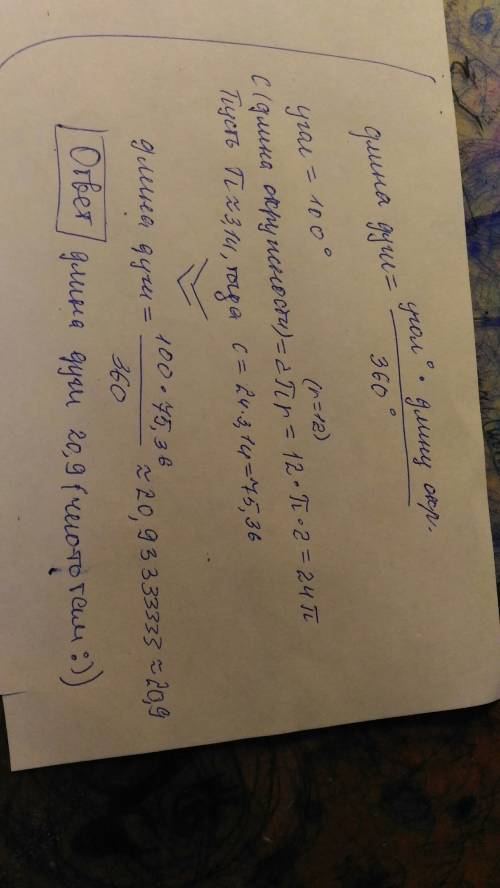 длина дуги = угол° · длину окр.
360°
угол = 100°
(r=12)
C (длина окружности) = 2πr = 12·π·2 = 24π
Пусть π≈3,14, тогда C = 24·3,14=75,36
длина дуги = 100·75,36 ≈ 20,93333333 ≈ 20,9
360
Ответ длина дуги 20,9 (чегото там :))